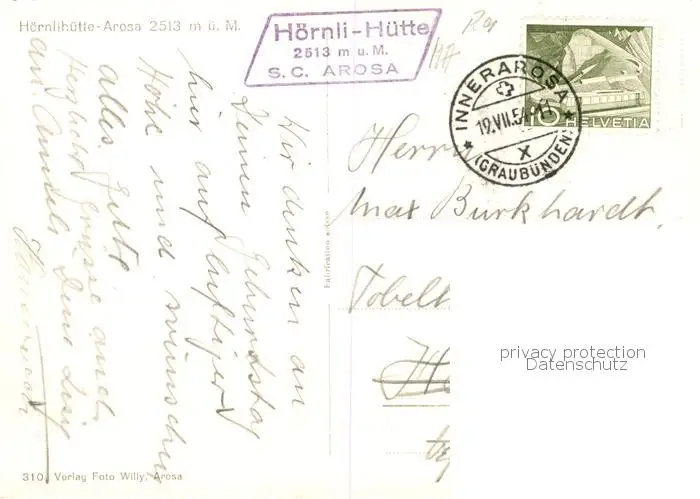 Hörnlihütte-Arosa 2513 m ü. M.
Hörnli-Hütte
2513 m ü. M.
S. C. AROSA
INNERAROSA
19.VII.54.-11
X
(GRAUBÜNDEN)
10 HELVETIA
Wir denken an
Deinen Geburtstag
hier auf luftiger
Höhe und wünschen
alles Gute
Herzliche Grüsse auch
an
Herrn
Max Burkhardt.
Tobel
privacy protection
Datenschutz
310 Verlag Foto Willy, Arosa